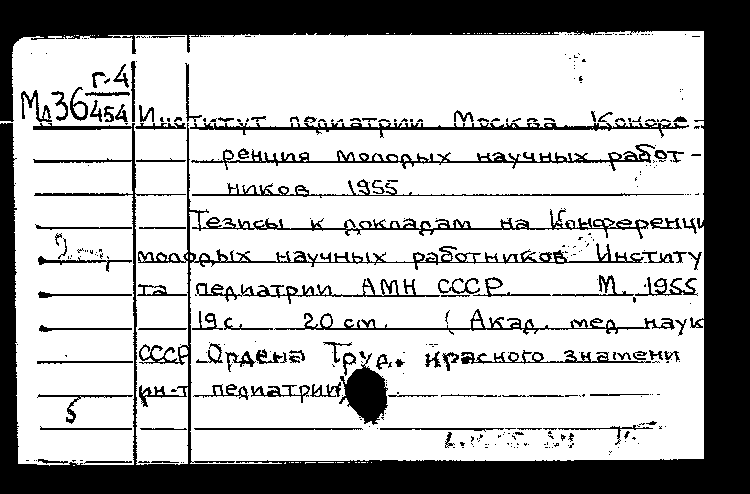 г-4
Мд36 454 Институт педиатрии. Москва. Конфе-
ренция молодых научных работ-
ников. 1955.
Тезисы к докладам на Конференци
молодых научных работников Институ
та педиатрии АМН СССР. М., 1955
19 с. 20 см. (Акад. мед наук
СССР Ордена Труд. красного знамени
ин-т педиатрии)
5